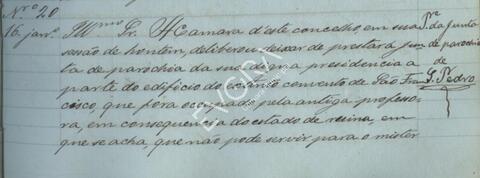 Nº 20
16 janrº
Illmo Sr. A Camara d'este concelho, em sua
sessão de hontem, deliberou deixar de prestar á jun
ta de parochia da sua digna presidencia a
parte do edificio do extincto convento de São Fran
cisco, que fôra occupado pela antiga professo
ra, em consequencia do estado de ruina, em
que se acha, que não pode servir para o mister
Pre da Junta
de parochia
de
S. Pedro